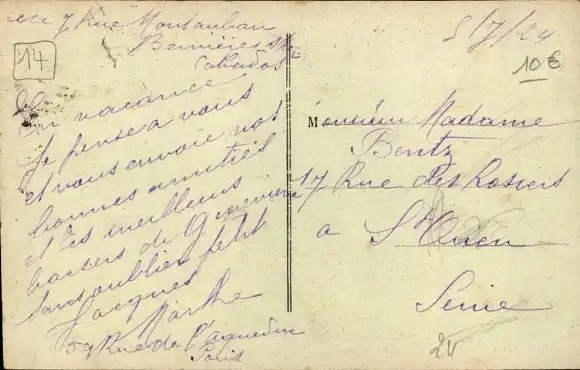 7 Rue Montauban
Bernières s/Mer
Calvados
14
En vacance
Je pense a vous
et vous envoie nos
bonnes amitiés
et les meilleurs
baisers de Geneviève
sans oublier petit
Jacques
Marthe
59 Rue de l'aqueduc
Paris
5/7/24
10 €
Monsieur Madame
Bentz
17 Rue des Rosiers
a St Ouen
Seine